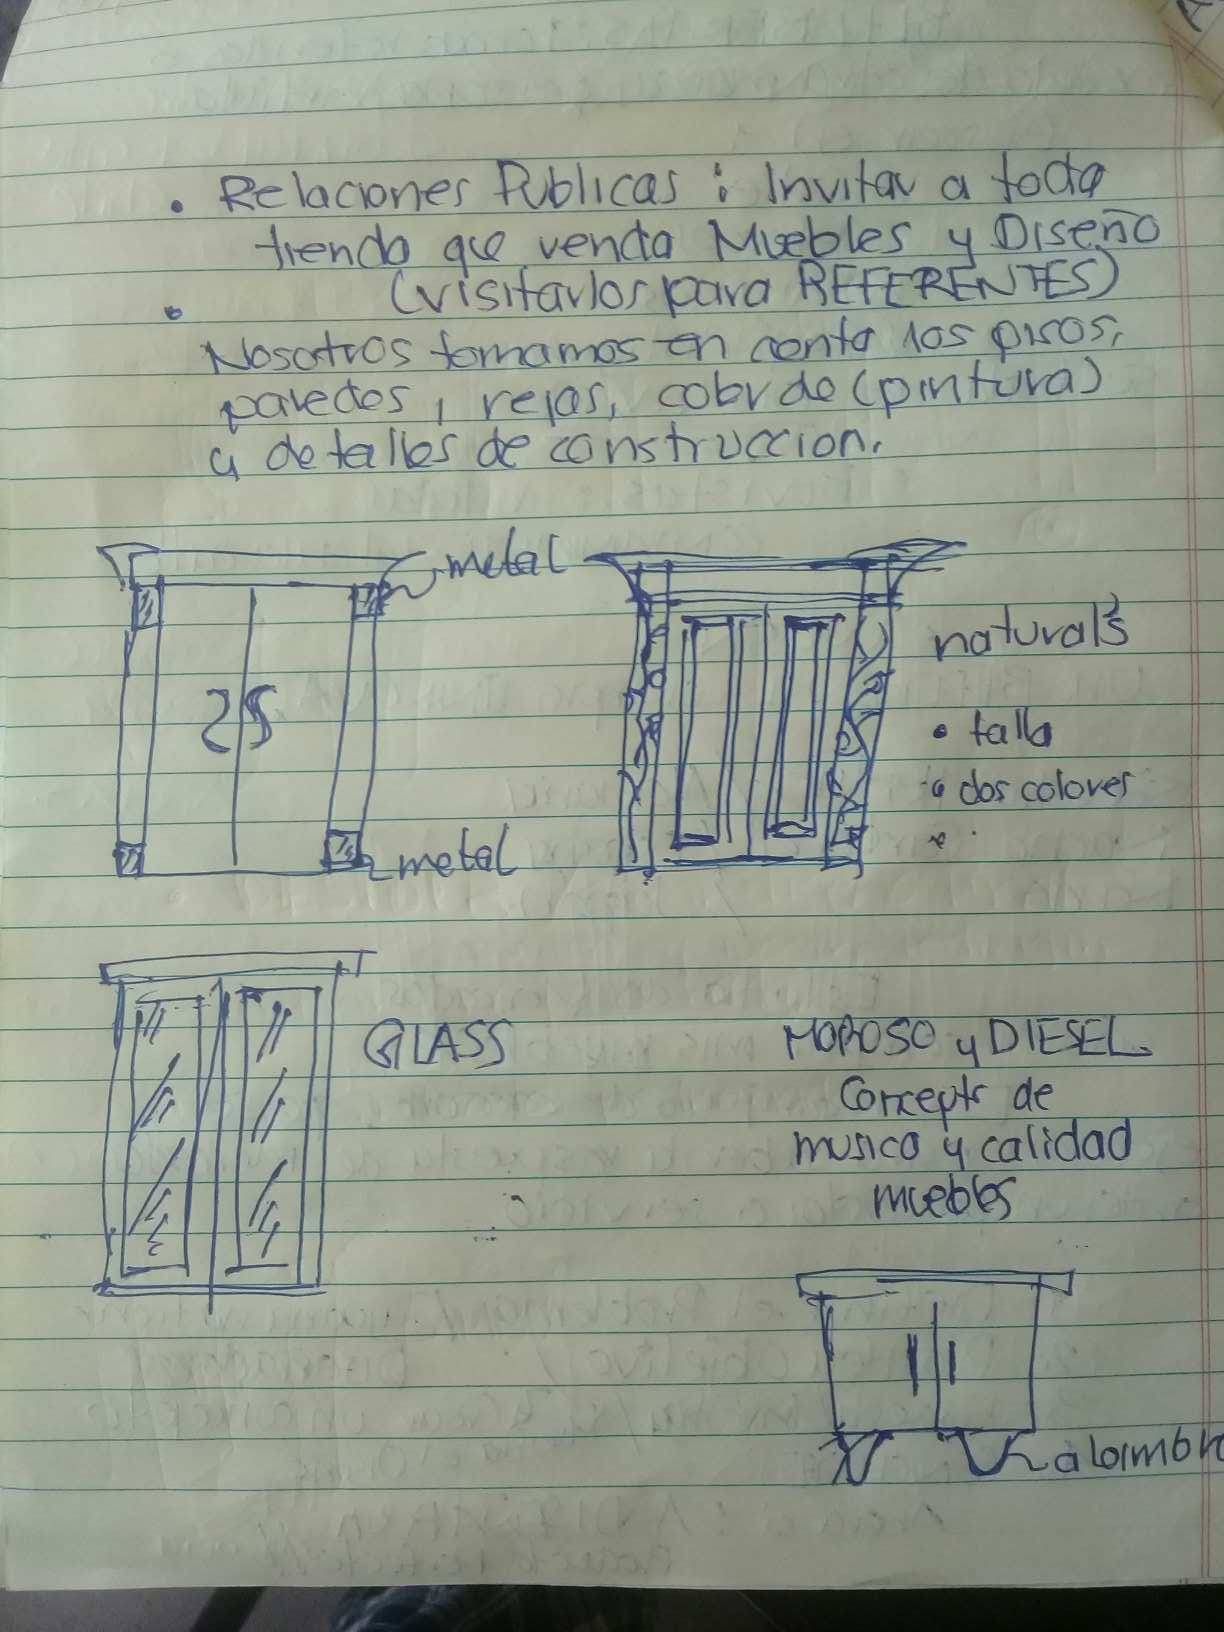 • Relaciones Publicas : Invitar a toda
tienda que venda Muebles y Diseño
(visitarlos para REFERENTES)
•
Nosotros tomamos en conta los pisos,
paredes, rejas, color de (pintura)
y detalles de construccion.
metal
25
metal
naturals
• talla
• dos colores
•
GLASS
MOROSO y DIESEL
Concepto de
musica y calidad
muebles
alambr